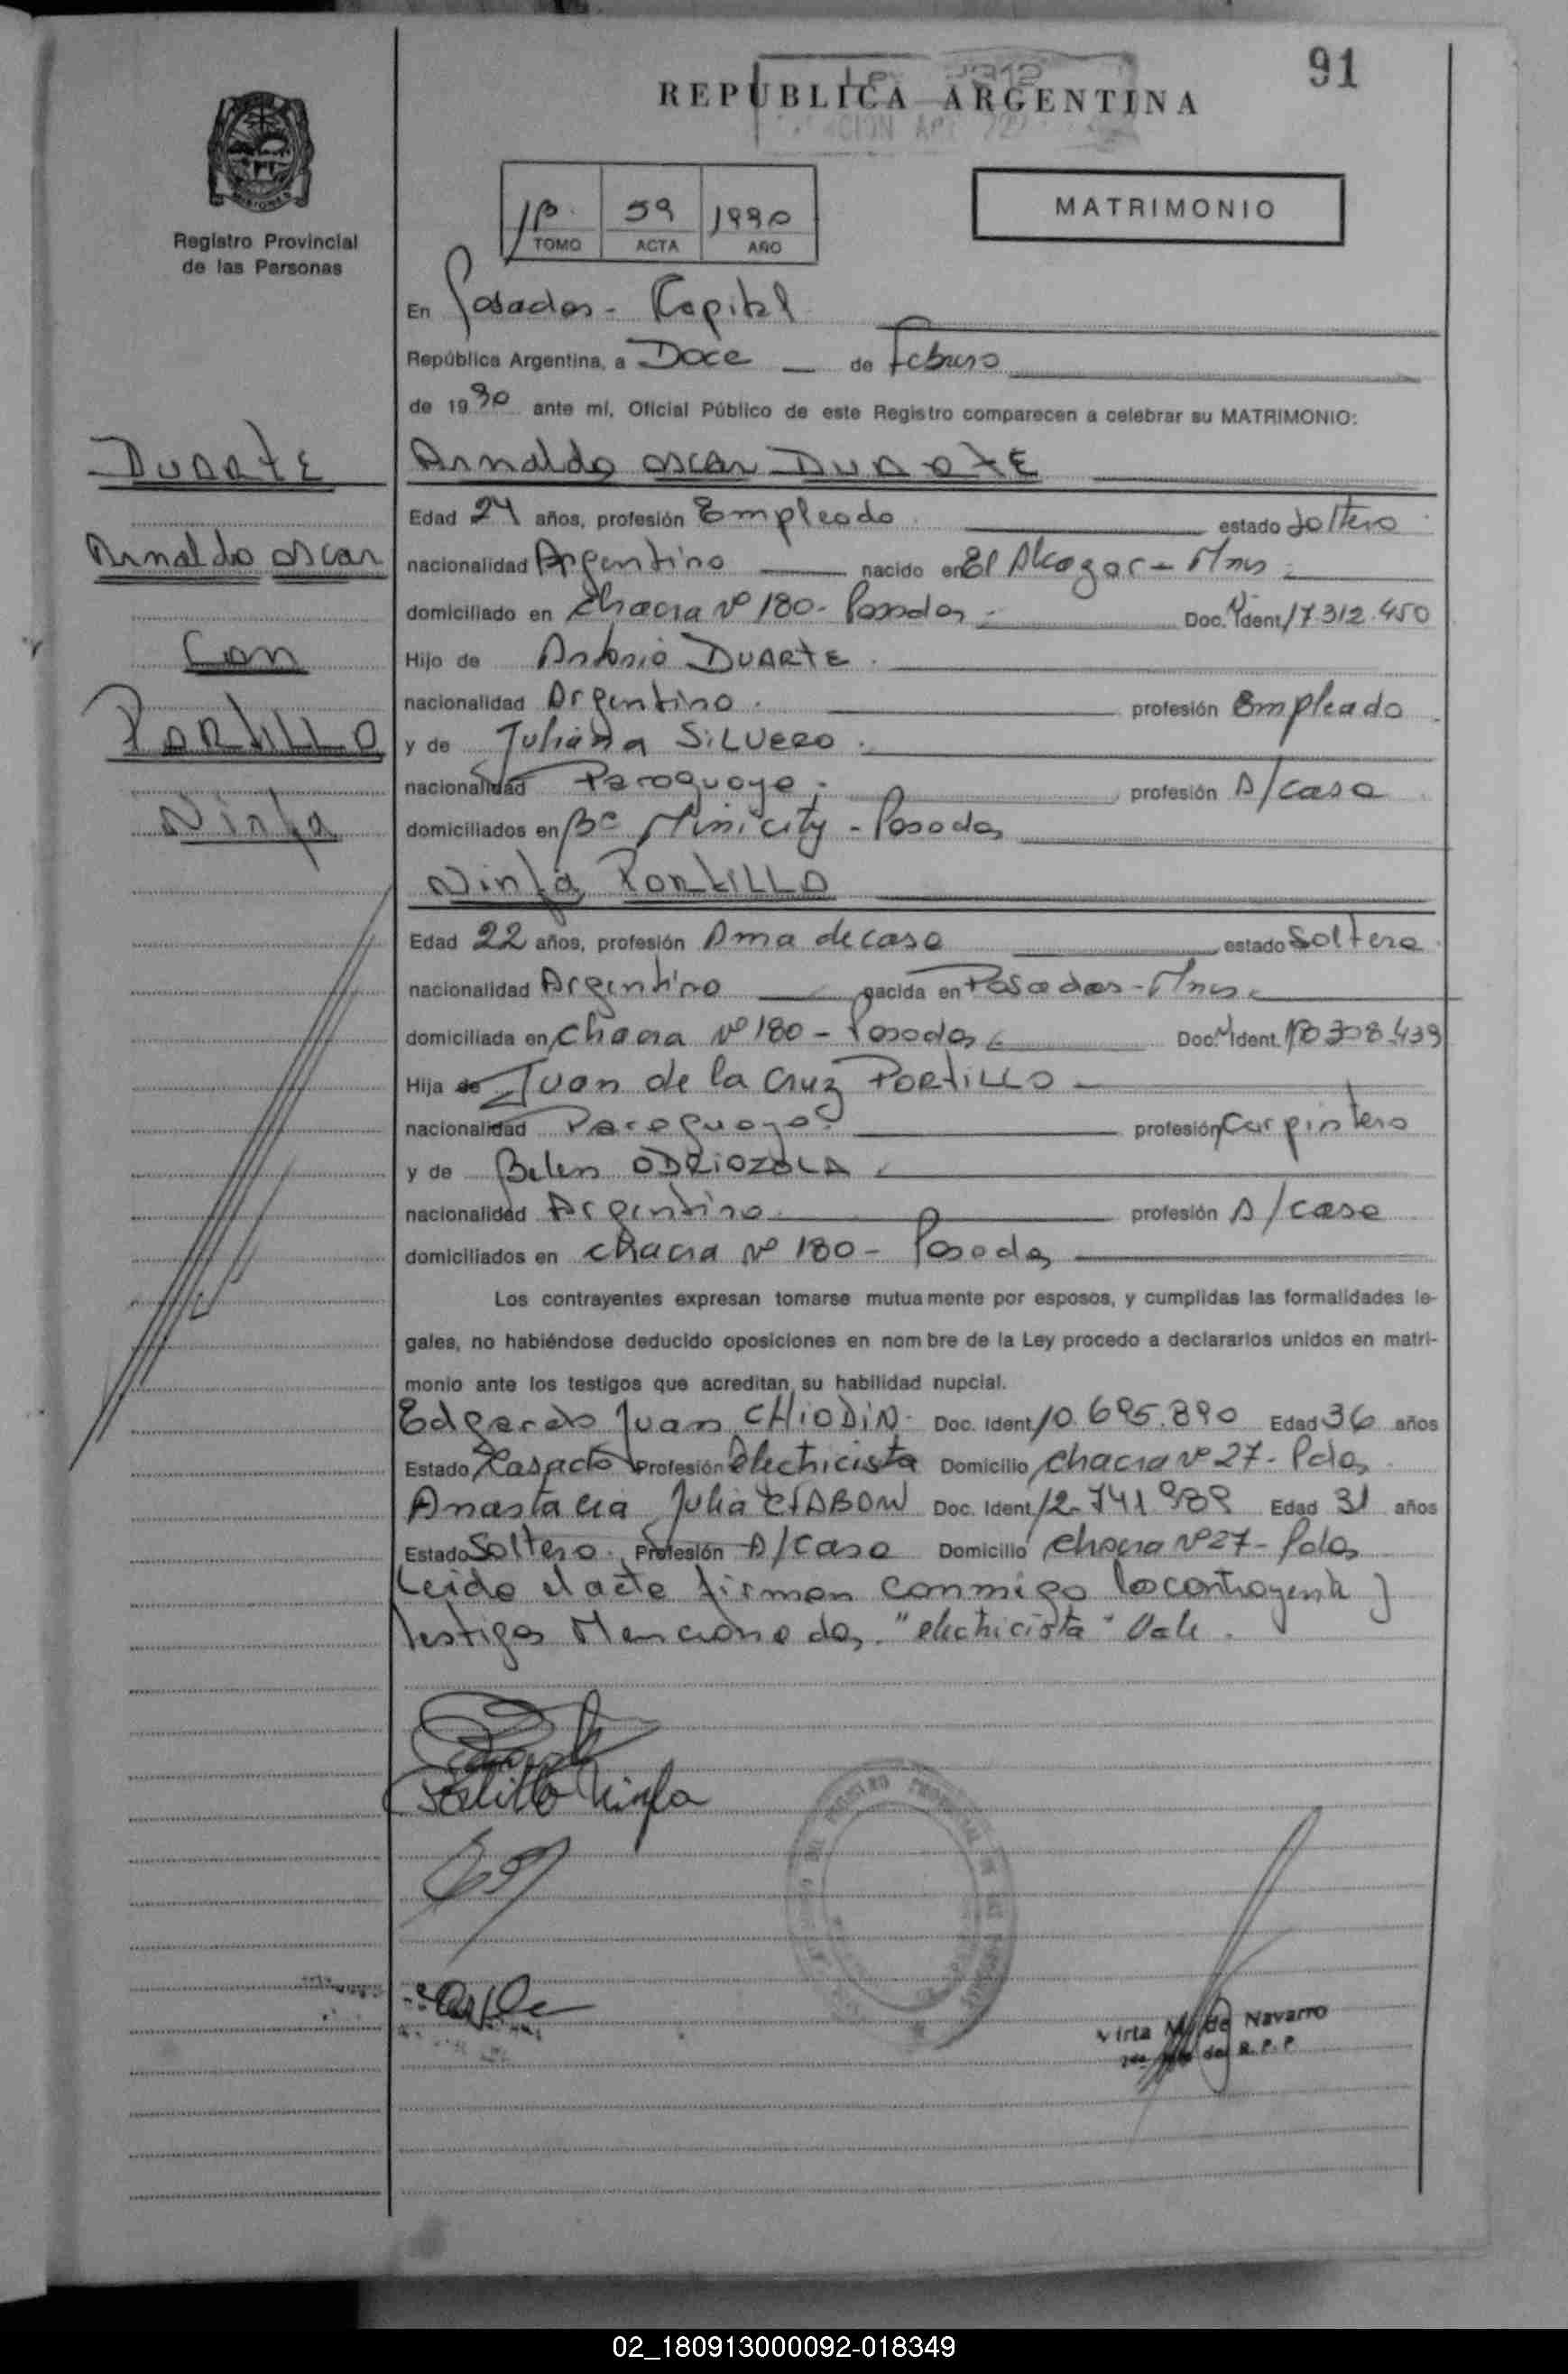 91
REPUBLICA ARGENTINA
1º 59 1990
TOMO ACTA AÑO
MATRIMONIO
MISIONES
Registro Provincial
de las Personas
En Posadas - Capital
República Argentina, a Doce de Febrero
de 1990 ante mí, Oficial Público de este Registro comparecen a celebrar su MATRIMONIO:
DUARTE
Arnaldo Oscar
Con
PORTILLO
Ninfa
Arnaldo Oscar DUARTE
Edad 24 años, profesión Empleado estado Soltero
nacionalidad Argentino nacido en El Alcazar - Mnes
domiciliado en Chacra Nº 180 - Posadas Doc. Ident. 17.312.450
Hijo de Antonio DUARTE
nacionalidad Argentino profesión Empleado
y de Juliana SILVERO
nacionalidad Paraguaya profesión A/casa
domiciliados en Bº Minicity - Posadas
Ninfa PORTILLO
Edad 22 años, profesión Ama de casa estado Soltera
nacionalidad Argentina nacida en Posadas - Mnes
domiciliada en Chacra Nº 180 - Posadas Doc. Ident.
Hija de Juan de la Cruz PORTILLO
nacionalidad Paraguayo profesión Carpintero
y de Belen ODRIOZOLA
nacionalidad Argentina profesión A/casa
domiciliados en chacra Nº 180 - Posadas
Los contrayentes expresan tomarse mutuamente por esposos, y cumplidas las formalidades le-
gales, no habiéndose deducido oposiciones en nombre de la Ley procedo a declararlos unidos en matri-
monio ante los testigos que acreditan su habilidad nupcial.
Edgardo Juan CHIODIN Doc. Ident. 10.695.890 Edad 36 años
Estado Casado Profesión Electricista Domicilio chacra Nº 27 - Pdas
Anastacia Julia Doc. Ident. 12.741.989 Edad 31 años
Estado Soltera Profesión A/casa Domicilio chacra Nº 27 - Pdas
Leido el acta firman conmigo los contrayentes y
testigos Mencionados. "electricista" Vale
Portillo Ninfa
Virta M. de Navarro
R. P. P.
02_180913000092-018349